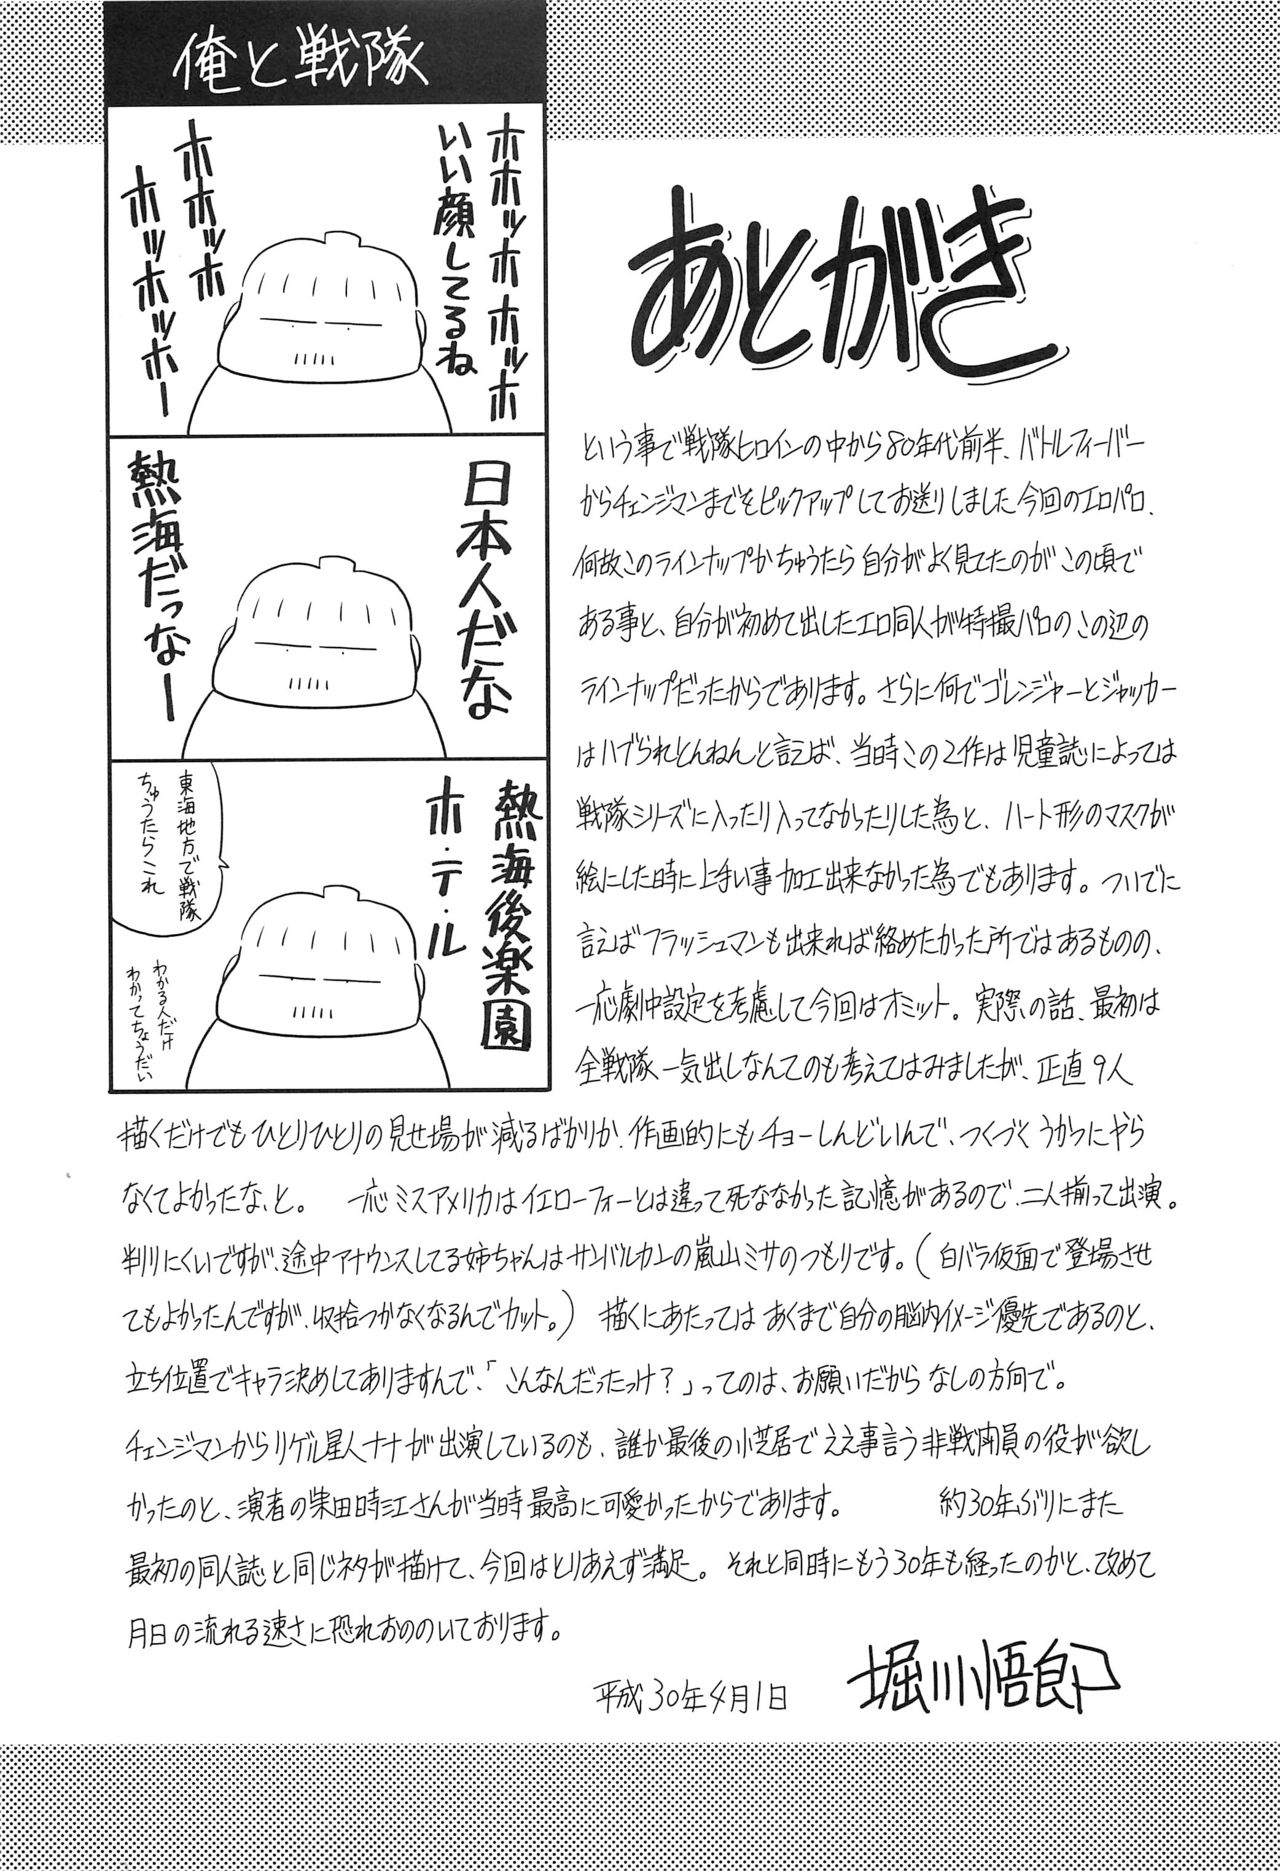 俺と戦隊
ホホッホホホッホ
いい顔してるね
ホホッホ
ホッホッホー
日本人だな
熱海だっなー
熱海後楽園
ホ・テ・ル
東海地方で戦隊
ちゅうたらこれ
わかる人だけ
わかってちょうだい
あとがき
という事で戦隊ヒロインの中から80年代前半、バトルフィーバー
からチェンジマンまでをピックアップしてお送りしました今回のエロパロ、
何故このラインナップかちゅうたら自分がよく見てたのがこの頃で
ある事と、自分が初めて出したエロ同人が特撮パロのこの辺の
ラインナップだったからであります。さらに何でゴレンジャーとジャッカー
はハブられとんねんと言えば、当時この2作は児童誌によっては
戦隊シリーズに入ったり入ってなかったりした為と、ハート形のマスクが
絵にした時に上手い事加工出来なかった為でもあります。ついでに
言えばフラッシュマンも出来れば絡めたかった所ではあるものの、
一応劇中設定を考慮して今回はオミット。実際の話、最初は
全戦隊一気出しなんてのも考えてはみましたが、正直9人
描くだけでもひとりひとりの見せ場が減るばかりか、作画的にもチョーしんどいんで、つくづくうかつにやら
なくてよかったな、と。 一応ミスアメリカはイエローフォーとは違って死ななかった記憶があるので、二人揃って出演。
判りにくいですが、途中アナウンスしてる姉ちゃんはサンバルカンの嵐山ミサのつもりです。(白バラ仮面で登場させ
てもよかったんですが、収拾つかなくなるんでカット。) 描くにあたってはあくまで自分の脳内イメージ優先であるのと、
立ち位置でキャラ決めしてありますんで、「こんなんだったっけ?」ってのは、お願いだからなしの方向で。
チェンジマンからリゲル星人ナナが出演しているのも、誰か最後の小芝居でええ事言う非戦闘員の役が欲し
かったのと、演者の柴田時江さんが当時最高に可愛かったからであります。 約30年ぶりにまた
最初の同人誌と同じネタが描けて、今回はとりあえず満足。それと同時にもう30年も経ったのかと、改めて
月日の流れる速さに恐れおののいております。
平成30年4月1日 堀川悟郎